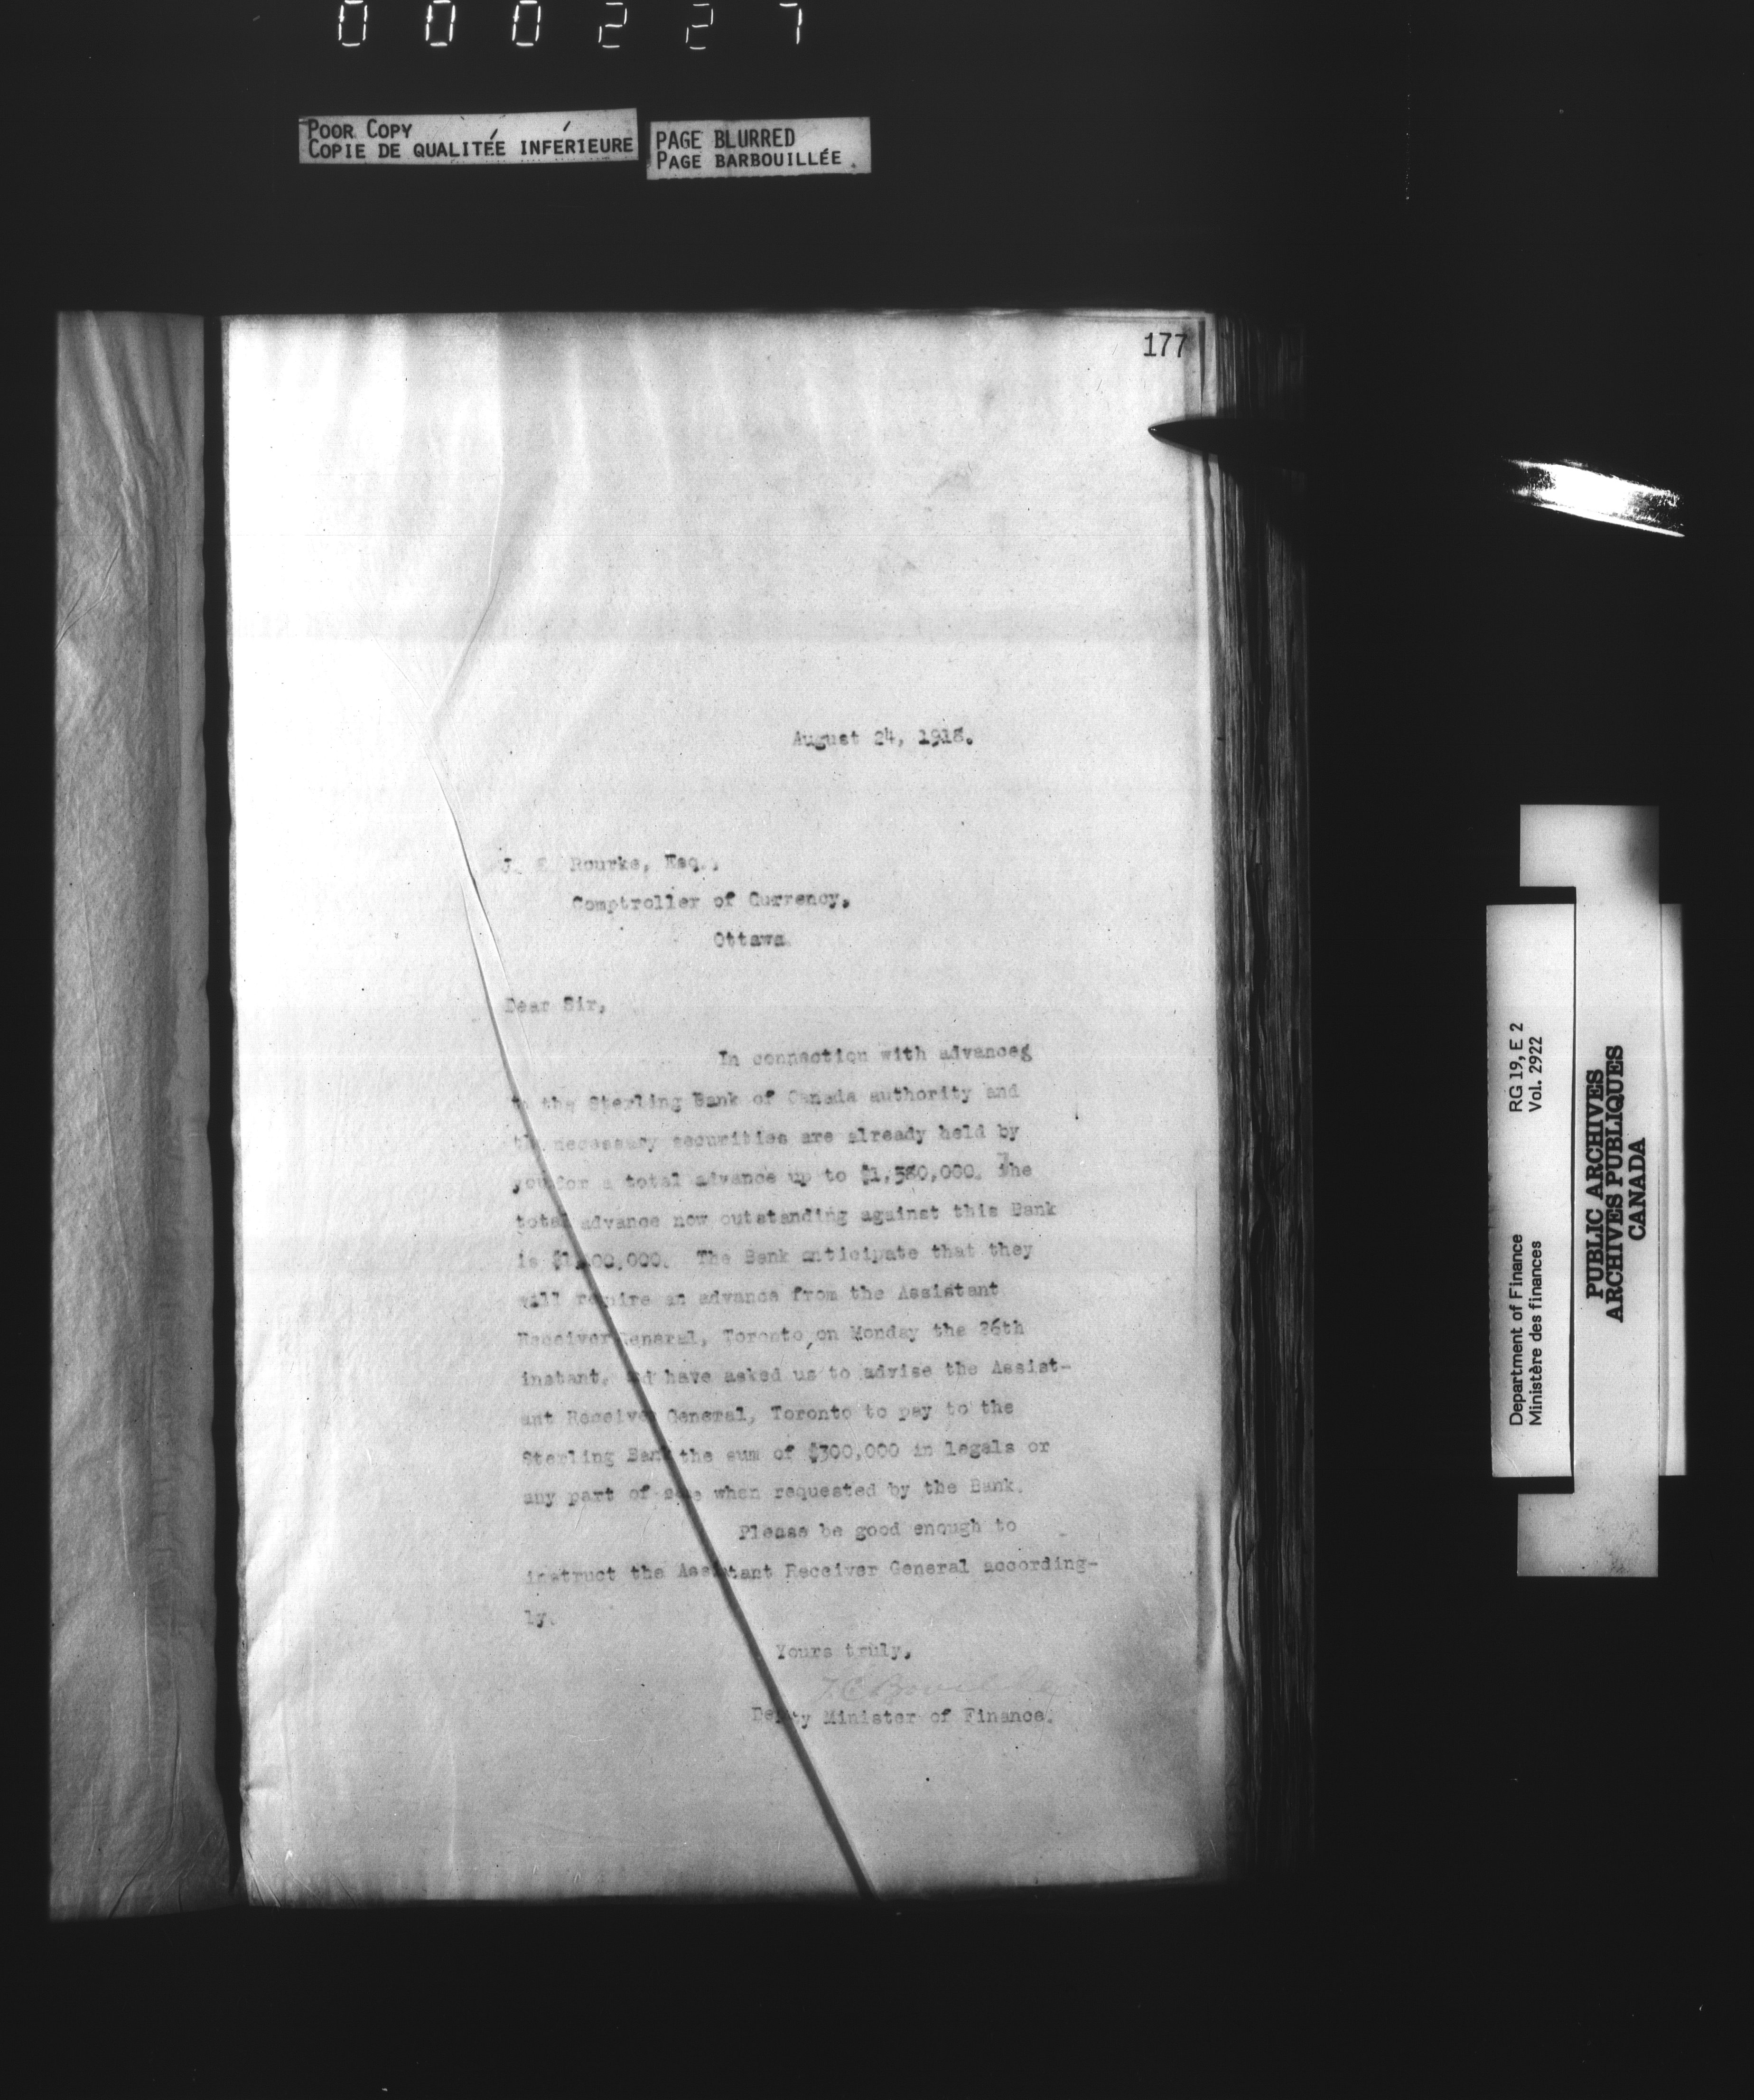 000227
POOR COPY
COPIE DE QUALITÉE INFÉRIEURE
PAGE BLURRED
PAGE BARBOUILLÉE
177
August 24, 1918.
Rourke, Esq.,
Comptroller of Currency,
Ottawa.
Dear Sir,
In connection with advances
to the Sterling Bank of Canada authority and
the necessary securities are already held by
you for a total advance up to $1,580,000. The
total advance now outstanding against this Bank
is The Bank anticipate that they
will require an advance from the Assistant
Receiver General, Toronto, on Monday the 26th
instant, and have asked us to advise the Assist-
ant Receiver General, Toronto to pay to the
Sterling Bank the sum of $300,000 in legals or
any part of same when requested by the Bank.
Please be good enough to
instruct the Assistant Receiver General according-
ly.
Yours truly,
T.C. Boville
Deputy Minister of Finance.
Department of Finance RG 19, E 2
Ministère des finances Vol. 2922
PUBLIC ARCHIVES
ARCHIVES PUBLIQUES
CANADA